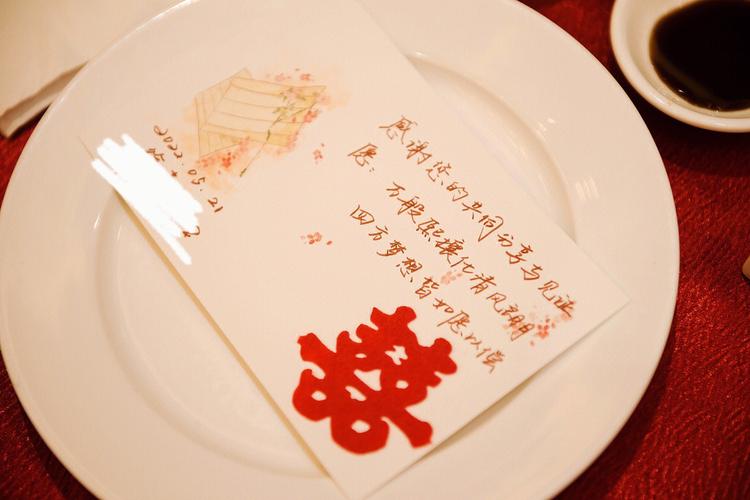 感谢您的共同分享与见证
愿：万般熙攘化清风朗明
四方梦想皆如愿以偿
2022.05.21
囍